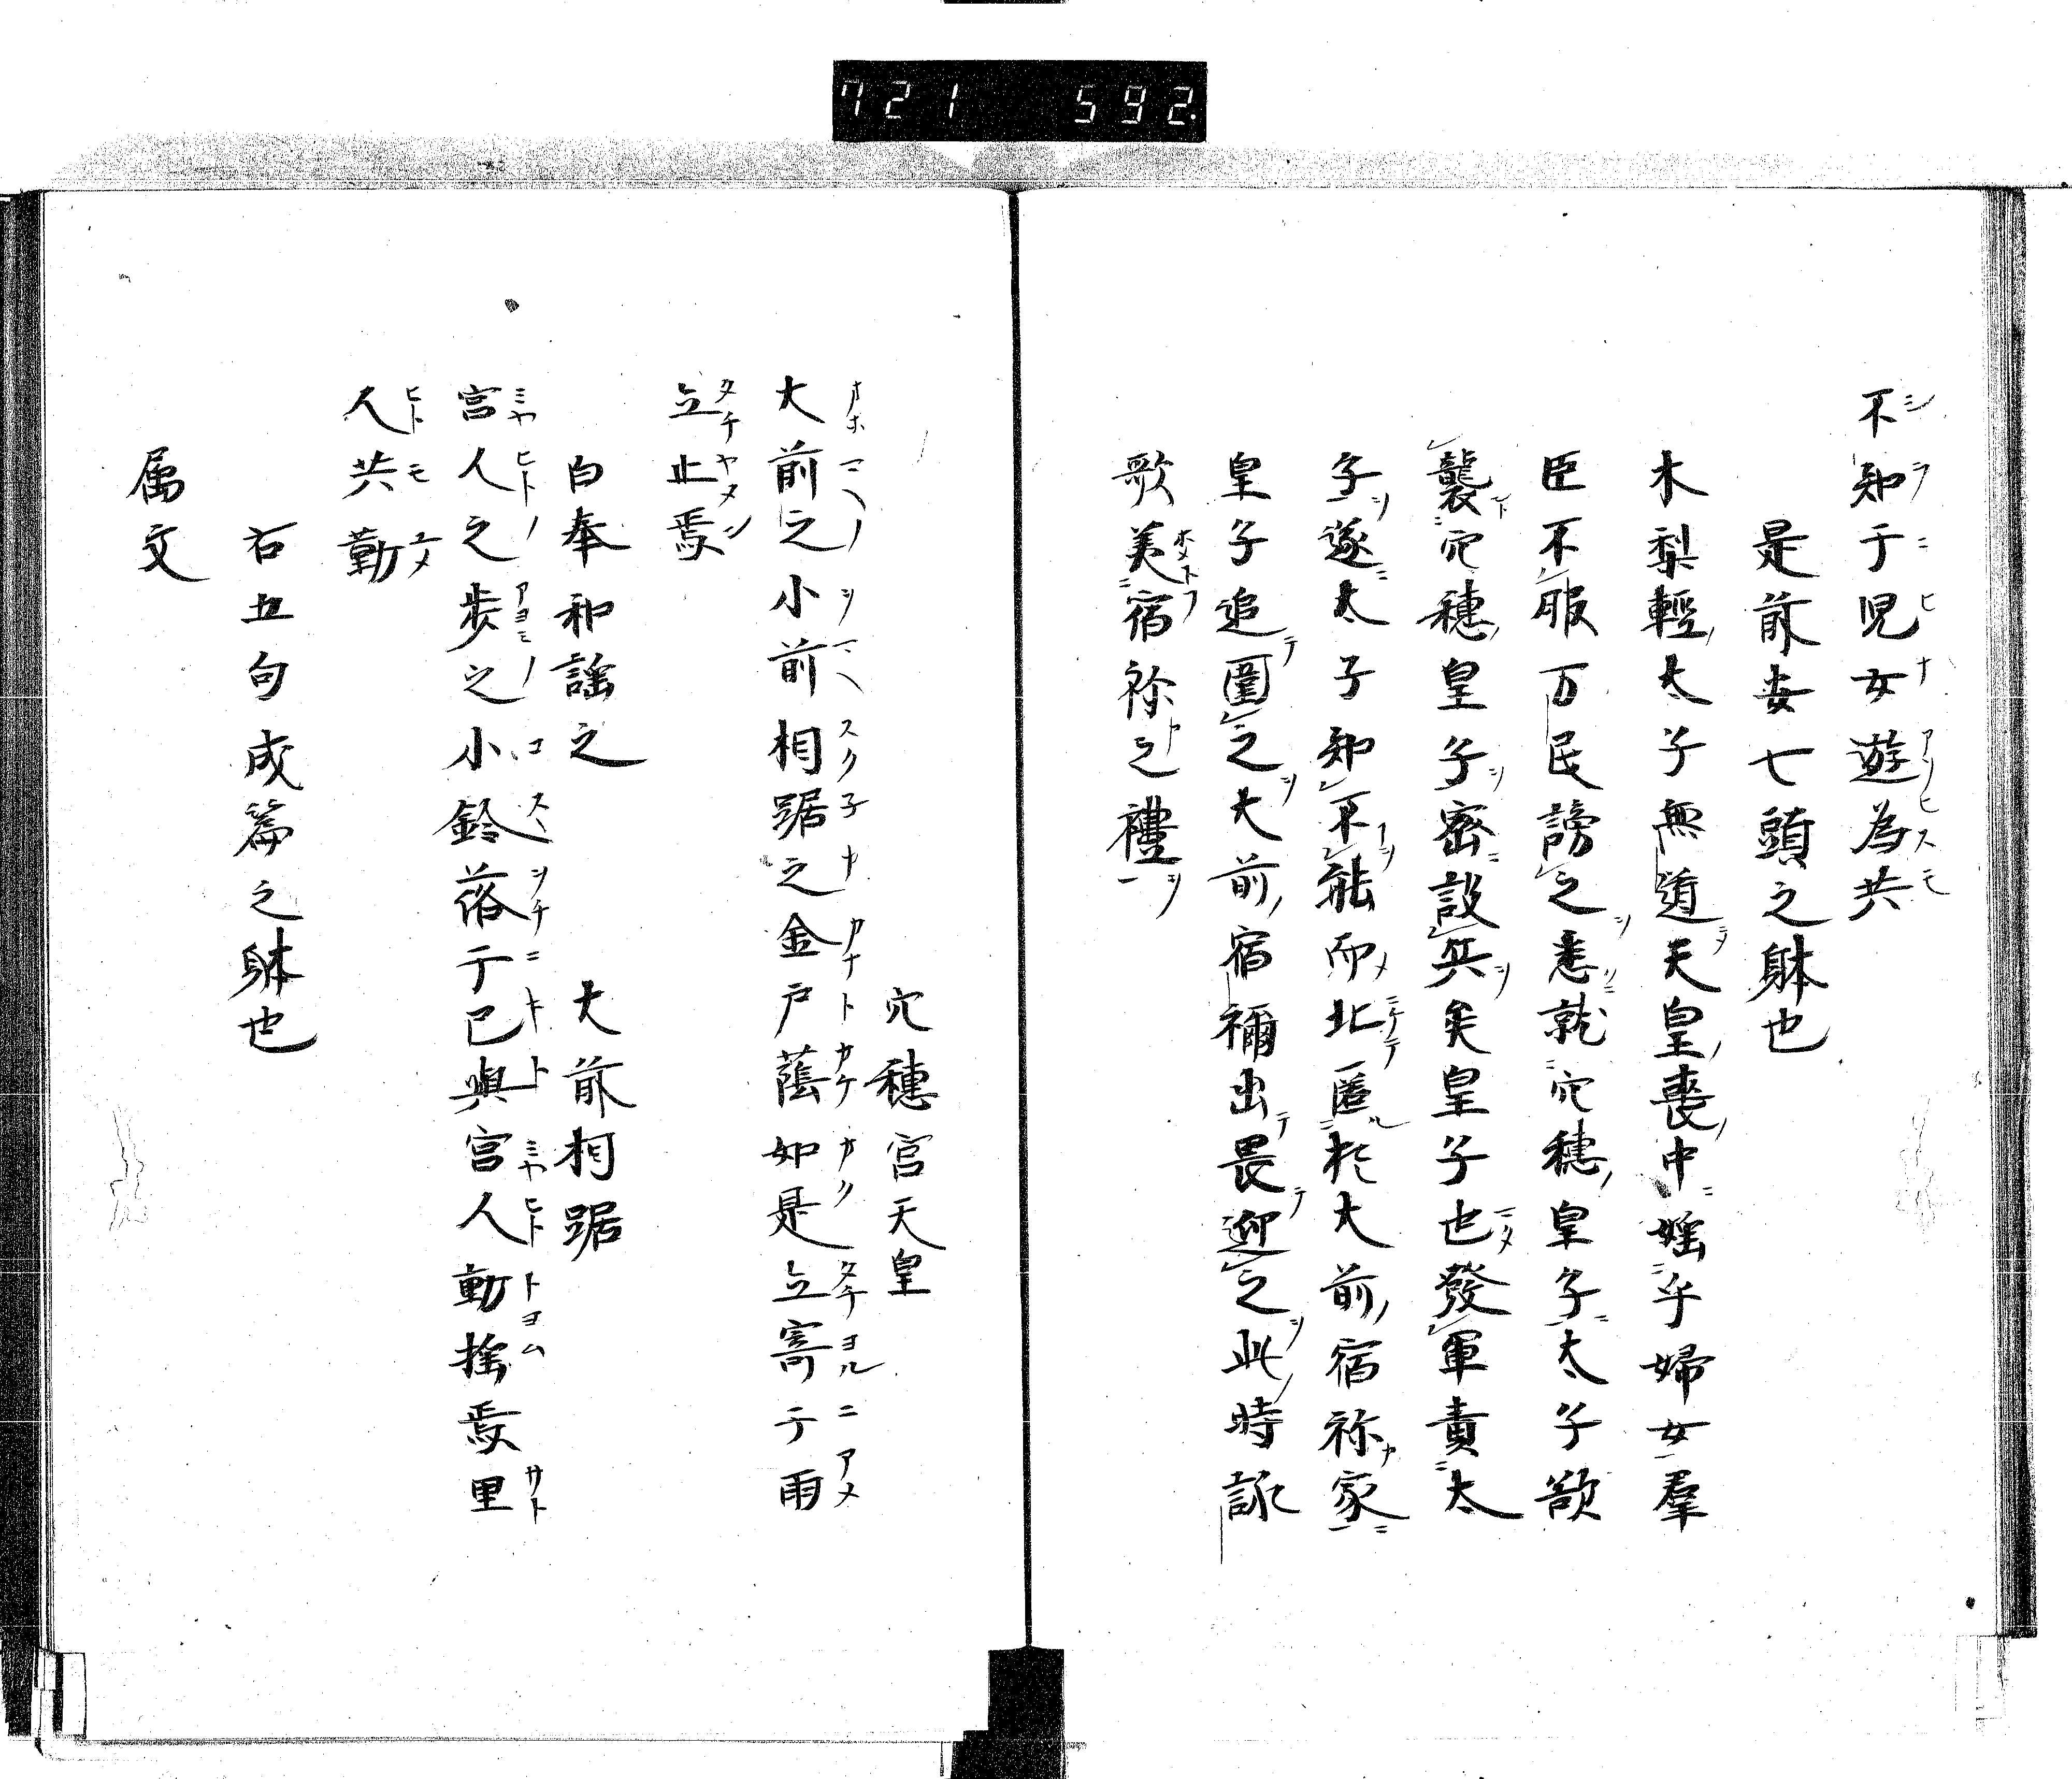 721 592.
不知于児女遊為共
是前妾七頭之躰也
木梨輕太子無道天皇喪中婬乎婦女羣
臣不服万民謗之悉就穴穗皇子太子欲
襲穴穗皇子密設兵矣皇子也發軍責太
子遂太子知不能而北匿於大前宿祢家
皇子追圍之大前宿禰出畏迎之此時詠
歌美宿祢之禮
穴穗宮天皇
大前之小前相踞之金戸蔭如是立寄于雨
立止焉
白奉和謡之　大前相踞
宮人之歩之小鈴落于已與宮人動揺焉里
人共勤
右五句成篇之躰也
属文